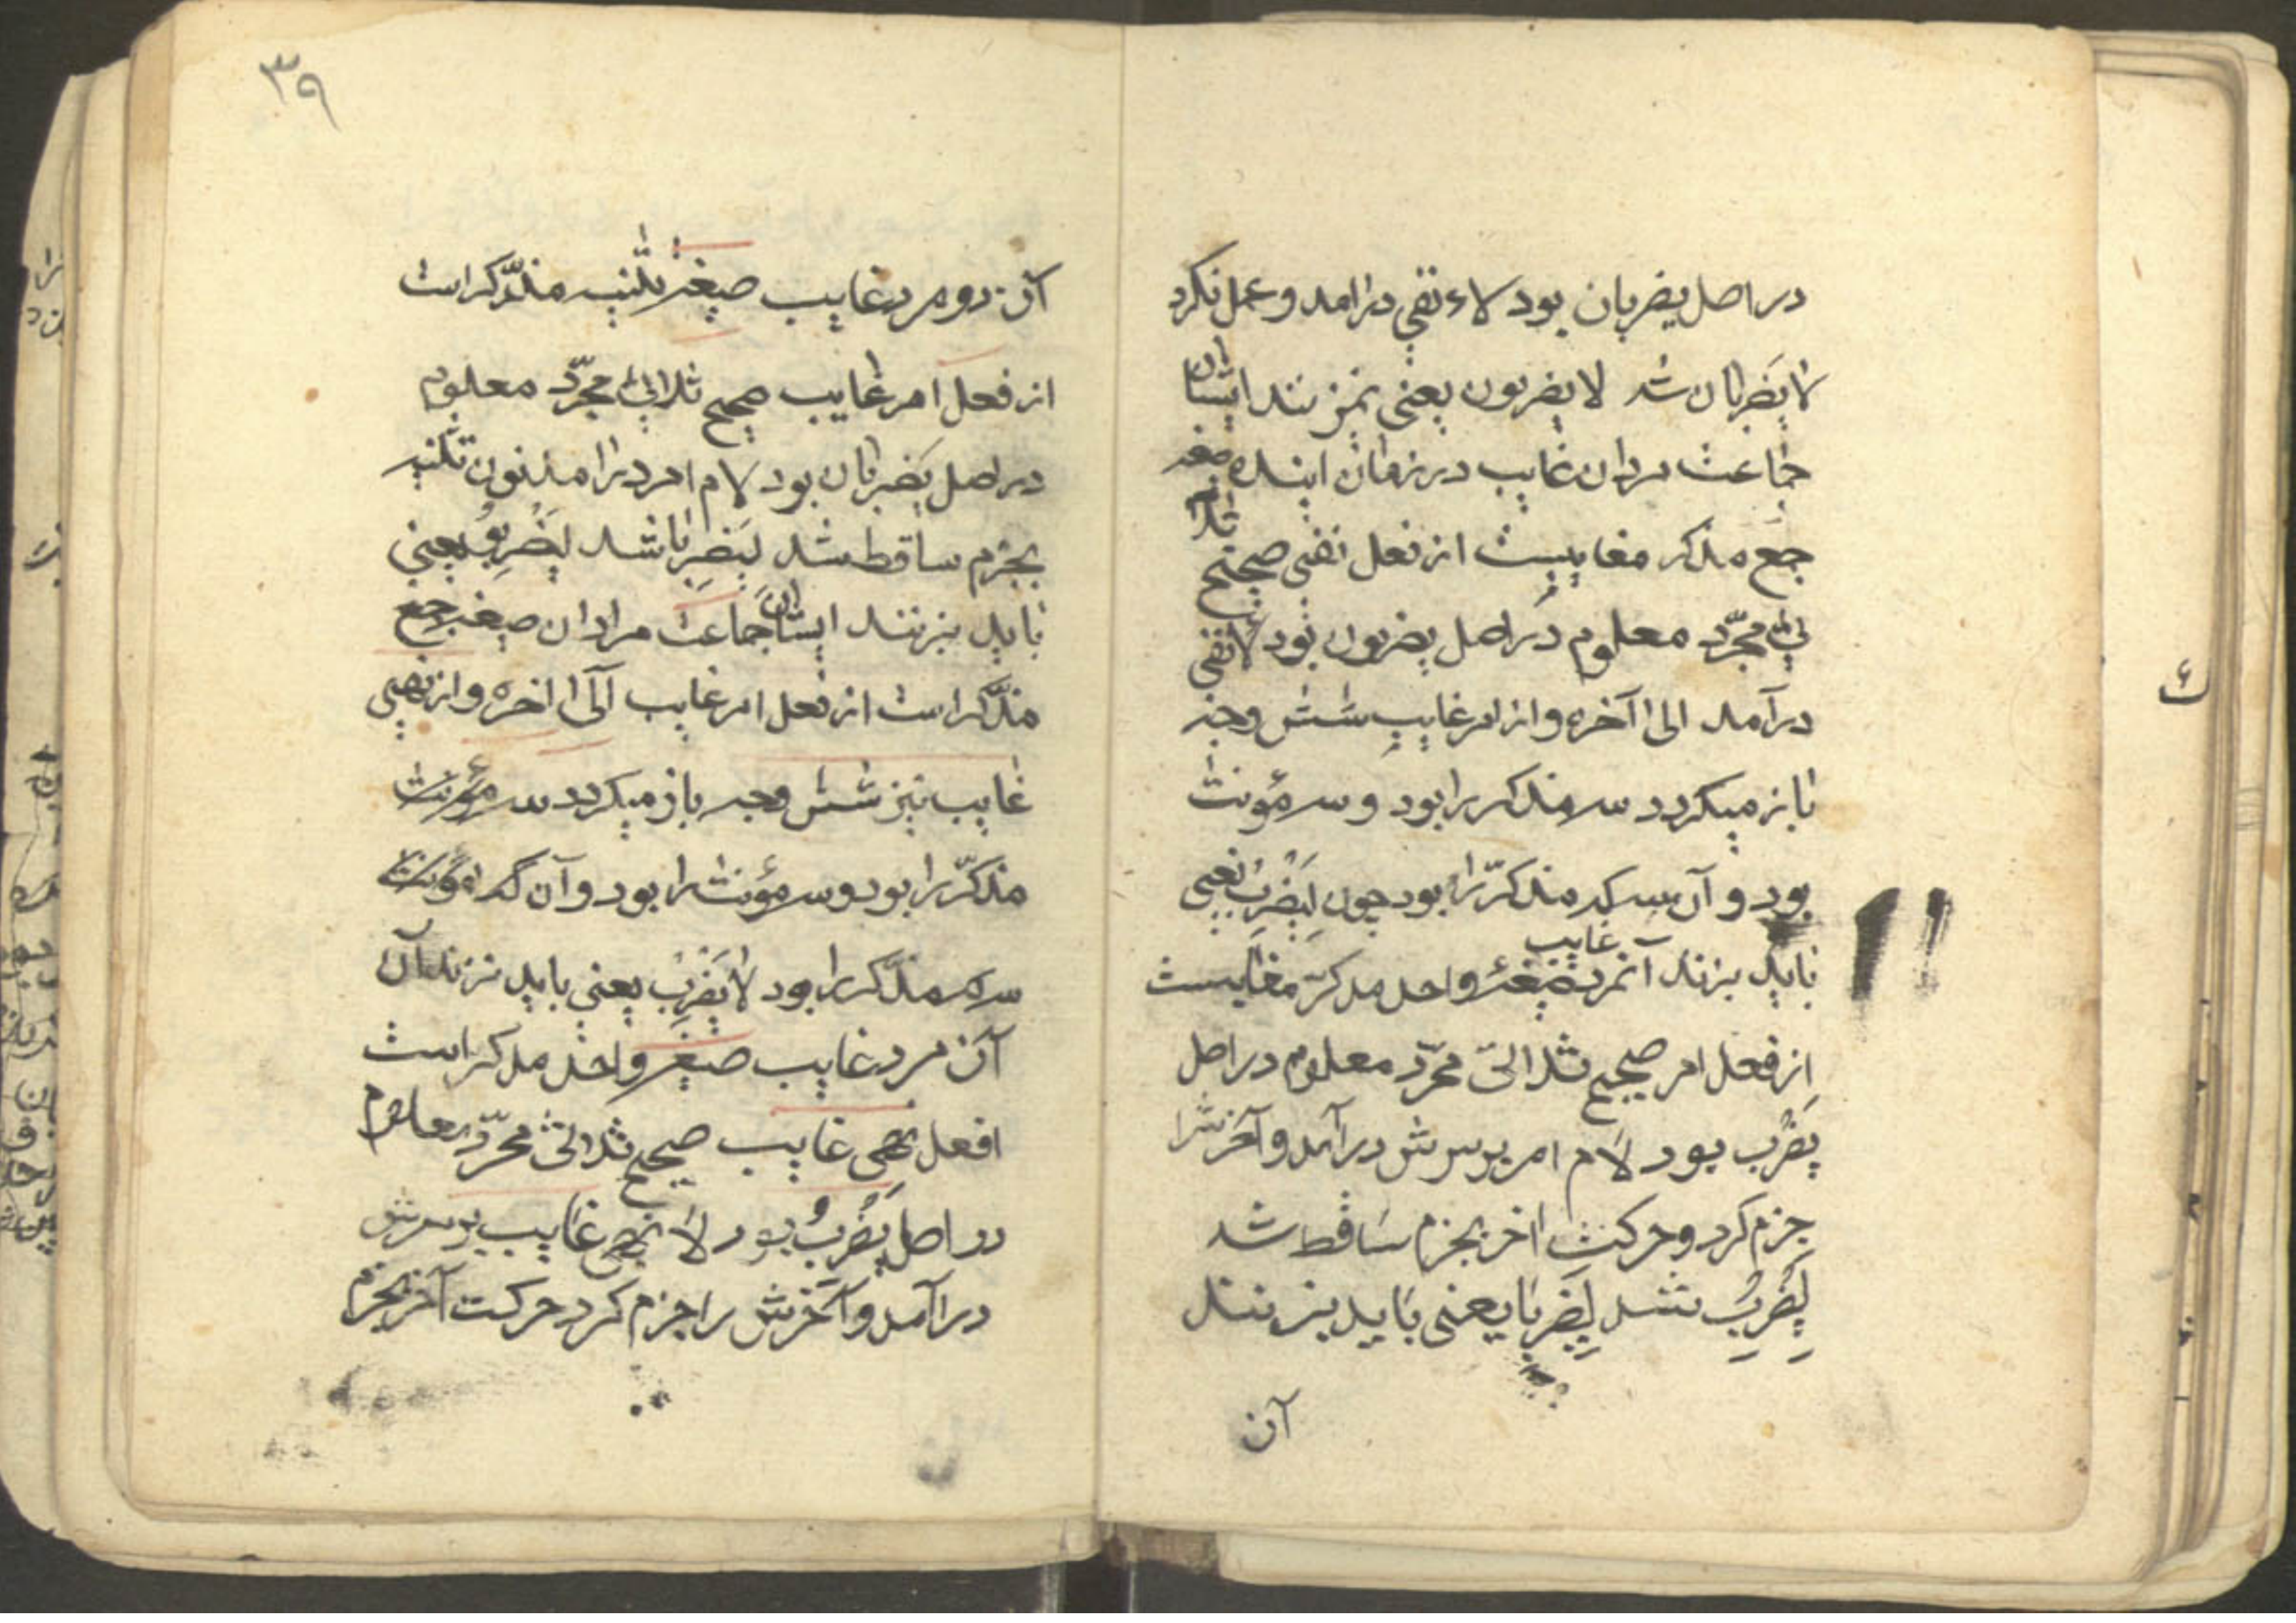 در اصل یضربان بود لاء نفی درامد و عمل نکرد
لا یَضربان شد لا یضربون یعنی نمیزنند ایشان
جماعت مردان غایب در زمان اینده صغه
جمع مذکر مغایبست از فعل نفی صحیح ثلا
ثی مجرّد معلوم در اصل یضربون بود لا نفی
درآمد الی آخره و از امر غایب شش وجه
باز میکردد سه مذکر را بود و سه مؤنث
بود و آن سه که مذکرّ را بود چون لِیَضْرِبْ یعنی
باید بزند آنمرد غایب صیغهٔ واحد مدکرّ مغایبست
از فعل امر صحیح ثلاثی مجرّد معلوم در اصل
یَضْرِبُ بود لام امر بر سرش درآمد و آخرش را
جزم کرد و حرکت اخر بجزم ساقط شد
لِیَضْرِبْ شد لِیَضْرِبا یعنی باید بزنند
آن
٣٩
آن دو مرد غایب صیغهٔ تثنیه مذکّر است
از فعل امر غایب صحیح ثلاثی مجرّد معلوم
در اصل یَضربان بود لام امر درامد نون تثنیه
بجزم ساقط شد لیَضرِبا شد لیَضْرِبُو یعنی
باید بزنند ایشان جماعت مرادان صیغه جمع
مذکّر است از فعل امر غایب الی اخره و از نهی
غایب نیز شش وجه باز میکردد سه مؤنث
مذکّر را بود و سه مؤنث را بود و آن که مؤنث
سه مذکّر را بود لا یَضْرِبْ یعنی باید نزند آن
آن مرد غایب صیغه واحد مدکر است
افعل نهی غایب صحیح ثلاثی مجرّد معلوم
در اصل یَضْرِبُ بود لا نهی غایب بر سرش
درآمد و آخرش را جزم کرد حرکت آخر بجزم